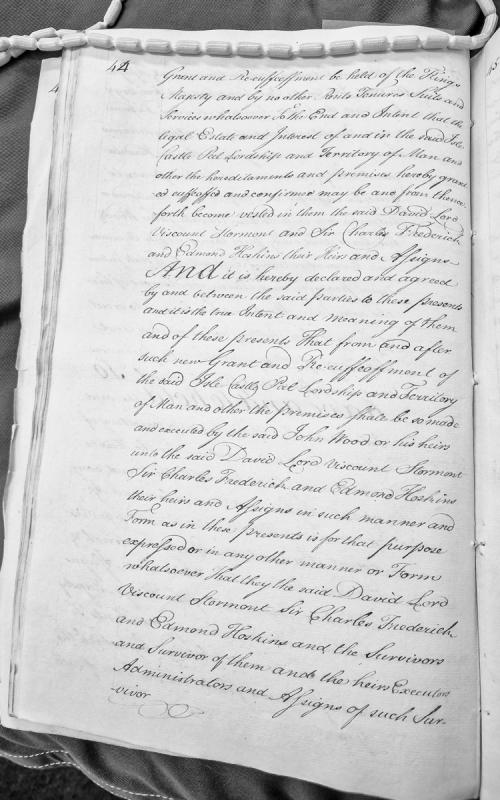 44
Grant and Re-enffeoffment be held of the Kings
Majesty and by no other Rents Tenures Suits and
Services whatsoever To the End and Intent that the
legal Estate and Interest of and in the said Isle
Castle Peel Lordship and Territory of Man and
other the hereditaments and premises hereby grant
ed enffeoffed and confirmed may be and from thence
forth become vested in them the said David Lord
Viscount Stormont and Sir Charles Frederick
and Edmond Hoskins their Heirs and Assigns
And it is hereby declared and agreed
by and between the said parties to these presents
and it is the true Intent and meaning of them
and of these presents That from and after
such new Grant and Re-enffeoffment of
the said Isle Castle Peel Lordship and Territory
of Man and other the premises shall be so made
and executed by the said John Wood or his heirs
unto the said David Lord Viscount Stormont
Sir Charles Frederick and Edmond Hoskins
their heirs and Assigns in such manner and
Form as in these presents is for that purpose
expressed or in any other manner or Form
whatsoever That they the said David Lord
Viscount Stormont Sir Charles Frederick
and Edmond Hoskins and the Survivors
and Survivor of them and the heirs Executors
Administrators and Assigns of such Sur-
vivor